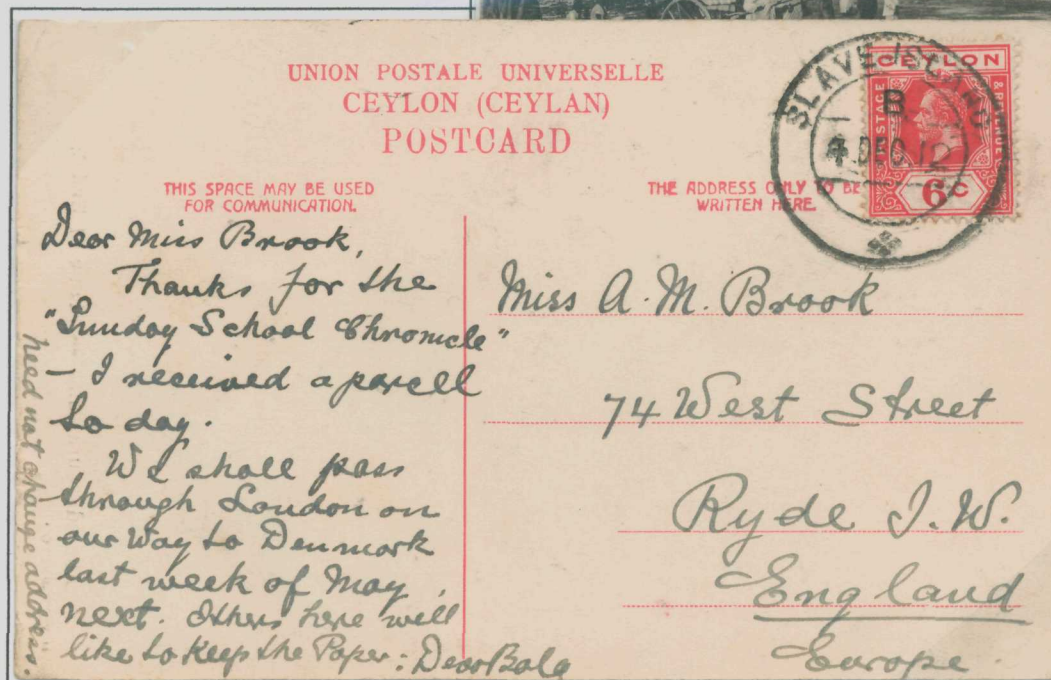 UNION POSTALE UNIVERSELLE
CEYLON (CEYLAN)
POSTCARD
THIS SPACE MAY BE USED
FOR COMMUNICATION.
THE ADDRESS ONLY TO BE
WRITTEN HERE.
SLAVE ISLAND
B
4 DEC 12
CEYLON
POSTAGE
& REVENUE
6 C
Dear Miss Brook,
Thanks for the
"Sunday School Chronicle"
– I received a parcell
to day.
We shall pass
through London on
our way to Denmark
last week of May,
next. Others here will
like to keep the Paper:
need not change address.
Miss A. M. Brook
74 West Street
Ryde I. W.
England
Europe.